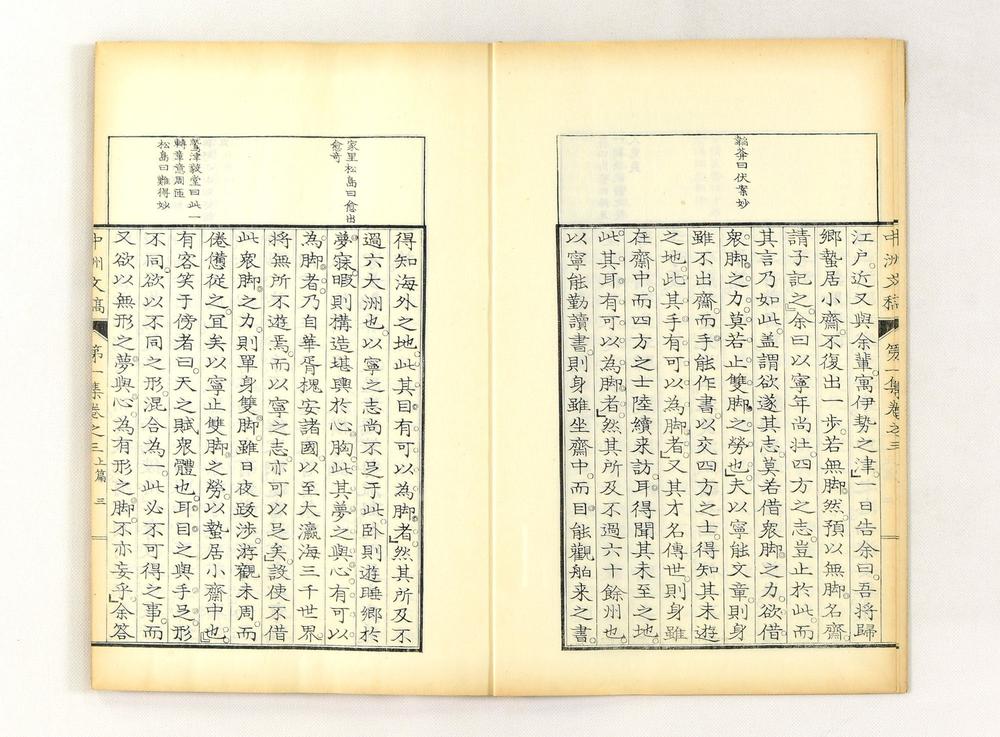 江戶近又與余輩寓伊勢之津一日告余曰吾將歸
鄉蟄居小齋不復出一步若無脚然預以無脚名齋
請子記之余曰以寧年尚壯四方之志豈止於此而
其言乃如此蓋謂欲遂其志莫若借衆脚之力欲借
衆脚之力莫若止雙脚之勞也夫以寧能文章則身
雖不出齋而手能作書以交四方之士得知其未遊
之地此其手有可以為脚者又其才名傳世則身雖
在齋中而四方之士陸續来訪耳得聞其未至之地
此其耳有可以為脚者然其所及不過六十餘州也
以寧能勤讀書則身雖坐齋中而目能觀舶来之書
曰伏案妙
中洲文稿
第一集卷之三
得知海外之地此其目有可以為脚者然其所及不
過六大洲也以寧之志尚不足于此卧則遊睡鄉於
夢寐暇則構造堪輿於心胸此其夢之與心有可以
為脚者乃自華胥槐安諸國以至大瀛海三千世界
將無所不遊焉而以寧之志亦可以足矣設使不借
此衆脚之力則單身雙脚雖日夜跋涉游觀未周而
倦憊從之冝矣以寧止雙脚之勞以蟄居小齋中也
有客笑于傍者曰天之賦衆體也耳目之與手足形
不同欲以不同之形混合為一此必不可得之事而
又欲以無形之夢與心為有形之脚不亦妄乎余答
家里松島曰愈出
愈奇
鷲津毅堂曰此一
轉章意周匝
松島曰難得妙
中洲文稿
第一集卷之三
上篇
三